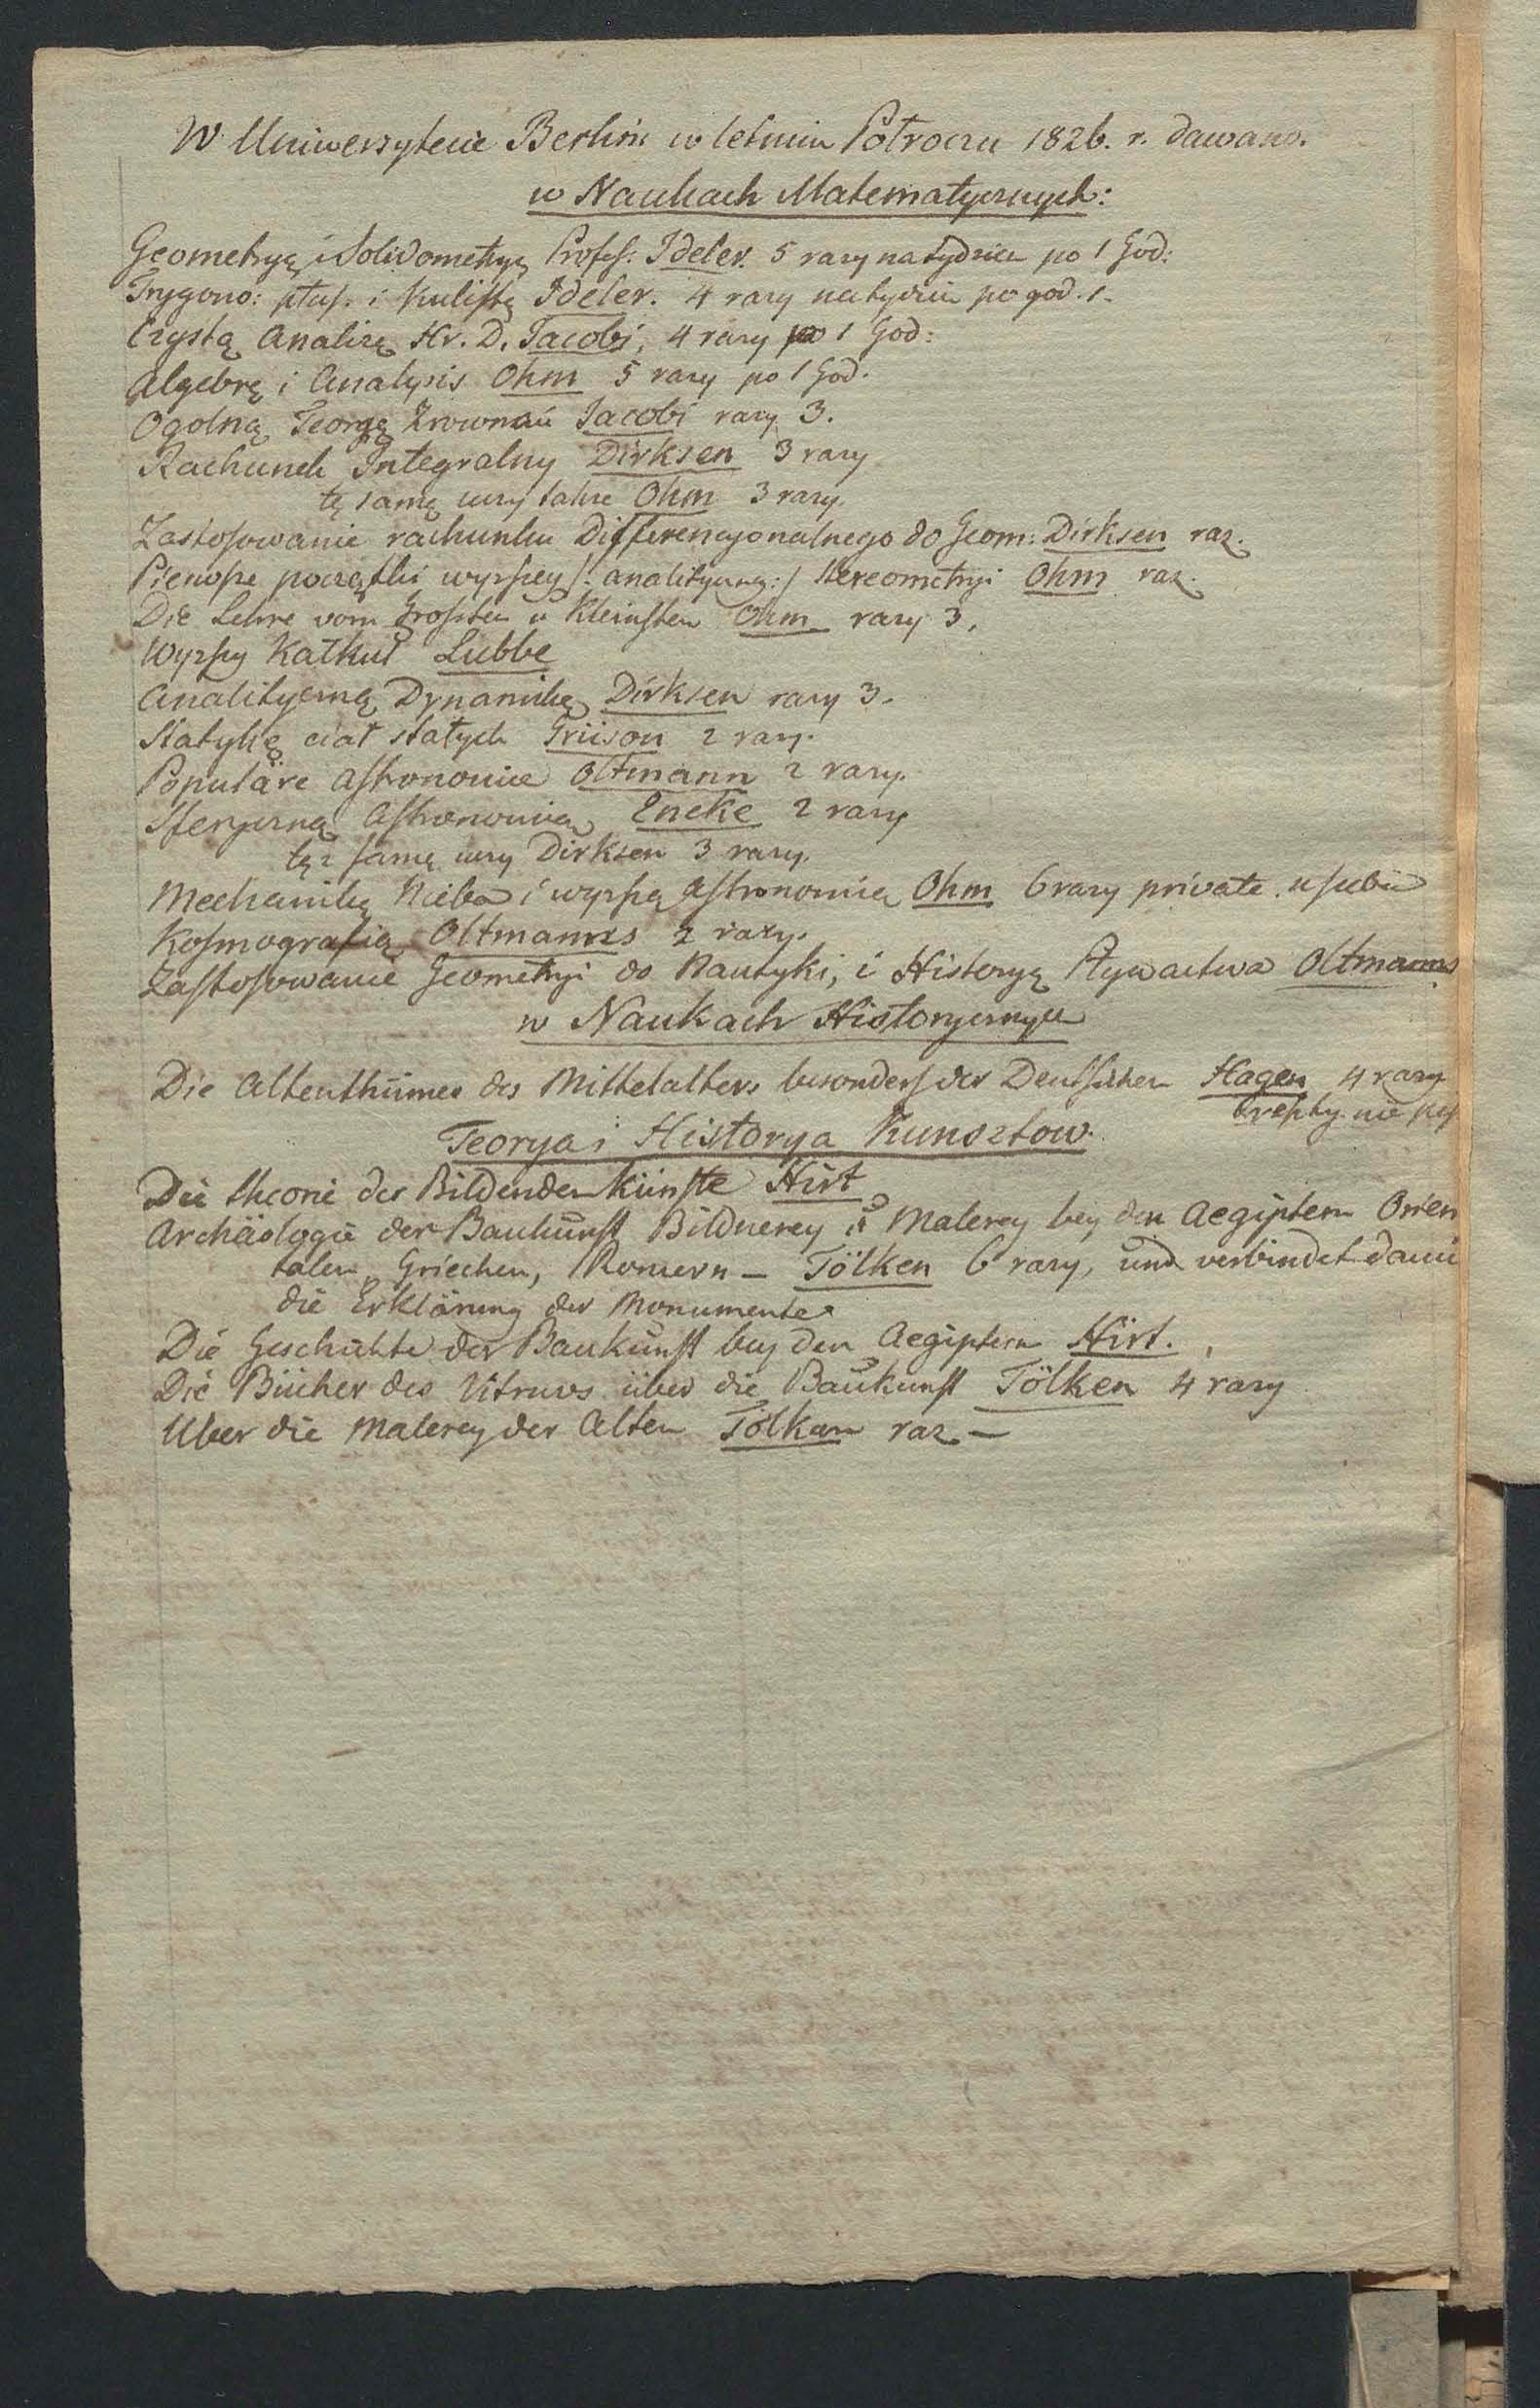 W Uniwersytecie Berlin: w letnim Półroczu 1826. r. dawano.
w Naukach Matematycznych:
Geometryą i Solidometryą Profes: Ideler. 5 razy na tydzień po 1 God:
Trygono: płas. i Kulistą Ideler. 4 razy na tydzień po god. 1.
Czystą Analizę Hr. D. Jacobi, 4 razy po 1 God:
Algebrę i Analysis Ohm 5 razy po 1 God.
Ogolną Teoryą Zrownań Jacobi razy 3.
Rachunek Integralny Dirksen 3 razy
tę samę uczy także Ohm 3 razy.
Zastosowanie rachunku Differencyonalnego do Geom: Dirksen raz.
Pierwsze początki wyższey /: analityczney :/ Stereometryi Ohm raz.
Die Lehre vom Grossten u Kleinsten Ohm razy 3.
Wyższy Kalkuł Lubbe
Analityczną Dynamikę Dirksen razy 3.
Statykę ciał stałych Grüson 2 razy.
Populäre Astronomie Oltmann 2 razy.
Sferyczną Astronomią Encke 2 razy
tęż samę uczy Dirksen 3 razy.
Mechanikę Nieba i wyższą Astronomią Ohm 6 razy private. u siebie
Kosmografią Oltmanns 2 razy.
Zastosowanie Geometryi do Nautyki, i Historyą Pływactwa Oltmanns
w Naukach Historycznych
Die Altenthümer des Mittelalters besonders der Deutschen Hagen 4 razy
Teorya i Historya Kunsztow.
Die theorie der Bildenden Künste Hirt
Archäologie der Baukunst Bildnerey u Malerey bey den Aegiptern Orien
talen Griechen, Romern – Tölken 6 razy, und verbindet damit
die Erklärung der Monumente
Die Geschichte der Baukunst bey den Aegiptern Hirt.
Die Bücher des Vitruvs über die Baukunst Tölken 4 razy
Uber die Malerey der Alten Tölken raz –